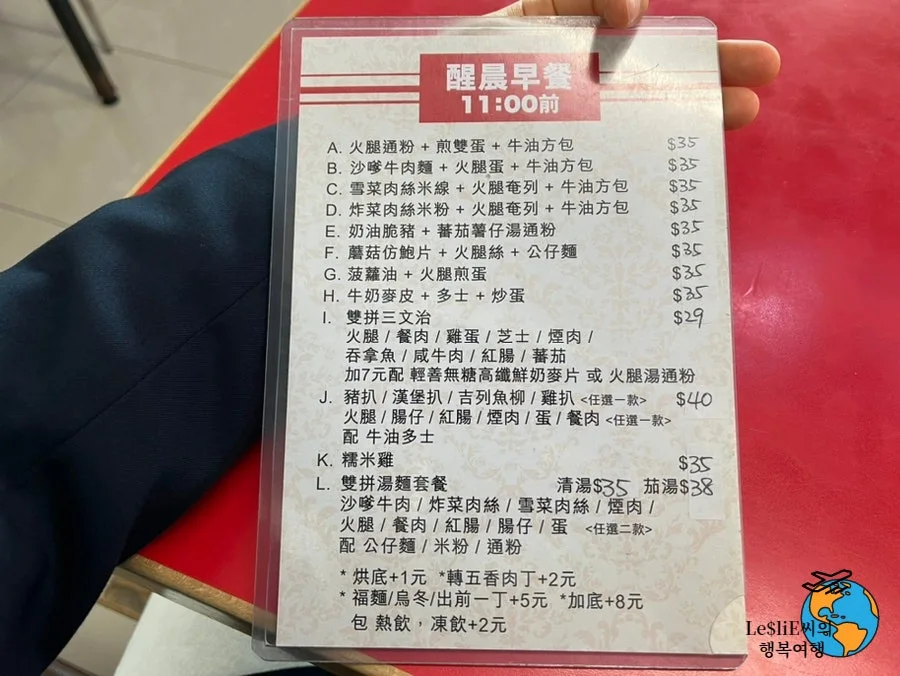 醒晨早餐
11:00前
A. 火腿通粉 + 煎雙蛋 + 牛油方包 $35
B. 沙嗲牛肉麵 + 火腿蛋 + 牛油方包 $35
C. 雪菜肉絲米線 + 火腿奄列 + 牛油方包 $35
D. 炸菜肉絲米粉 + 火腿奄列 + 牛油方包 $35
E. 奶油脆豬 + 蕃茄薯仔湯通粉 $35
F. 蘑菇仿鮑片 + 火腿絲 + 公仔麵 $35
G. 菠蘿油 + 火腿煎蛋 $35
H. 牛奶麥皮 + 多士 + 炒蛋 $35
I. 雙拼三文治 $29
火腿 / 餐肉 / 雞蛋 / 芝士 / 煙肉 /
吞拿魚 / 咸牛肉 / 紅腸 / 蕃茄
加7元配 輕善無糖高纖鮮奶麥片 或 火腿湯通粉
J. 豬扒 / 漢堡扒 / 吉列魚柳 / 雞扒 <任選一款> $40
火腿 / 腸仔 / 紅腸 / 煙肉 / 蛋 / 餐肉 <任選一款>
配 牛油多士
K. 糯米雞 $35
L. 雙拼湯麵套餐 清湯$35 茄湯$38
沙嗲牛肉 / 炸菜肉絲 / 雪菜肉絲 / 煙肉 /
火腿 / 餐肉 / 紅腸 / 腸仔 / 蛋 <任選二款>
配 公仔麵 / 米粉 / 通粉
* 烘底+1元 *轉五香肉丁+2元
* 福麵/烏冬/出前一丁+5元 *加底+8元
包 熱飲，凍飲+2元
Le$liE씨의
행복여행